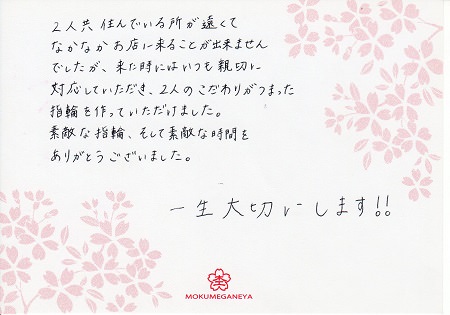 2人共 住んでいる所が遠くて
なかなかお店に来ることが出来ません
でしたが、来た時にはいつも親切に
対応していただき、2人のこだわりがつまった
指輪を作っていただけました。
素敵な指輪、そして素敵な時間を
ありがとうございました。
一生大切にします!!
MOKUMEGANEYA